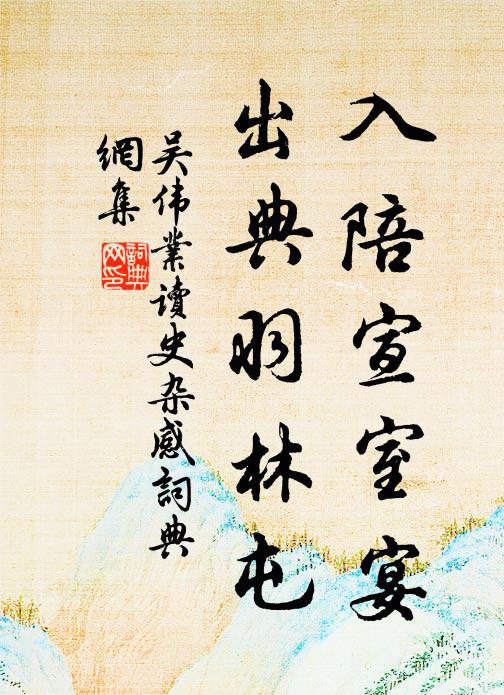 入陪宣室宴
出典羽林屯
吴伟業讀史杂感詞典
網集
詞典网印